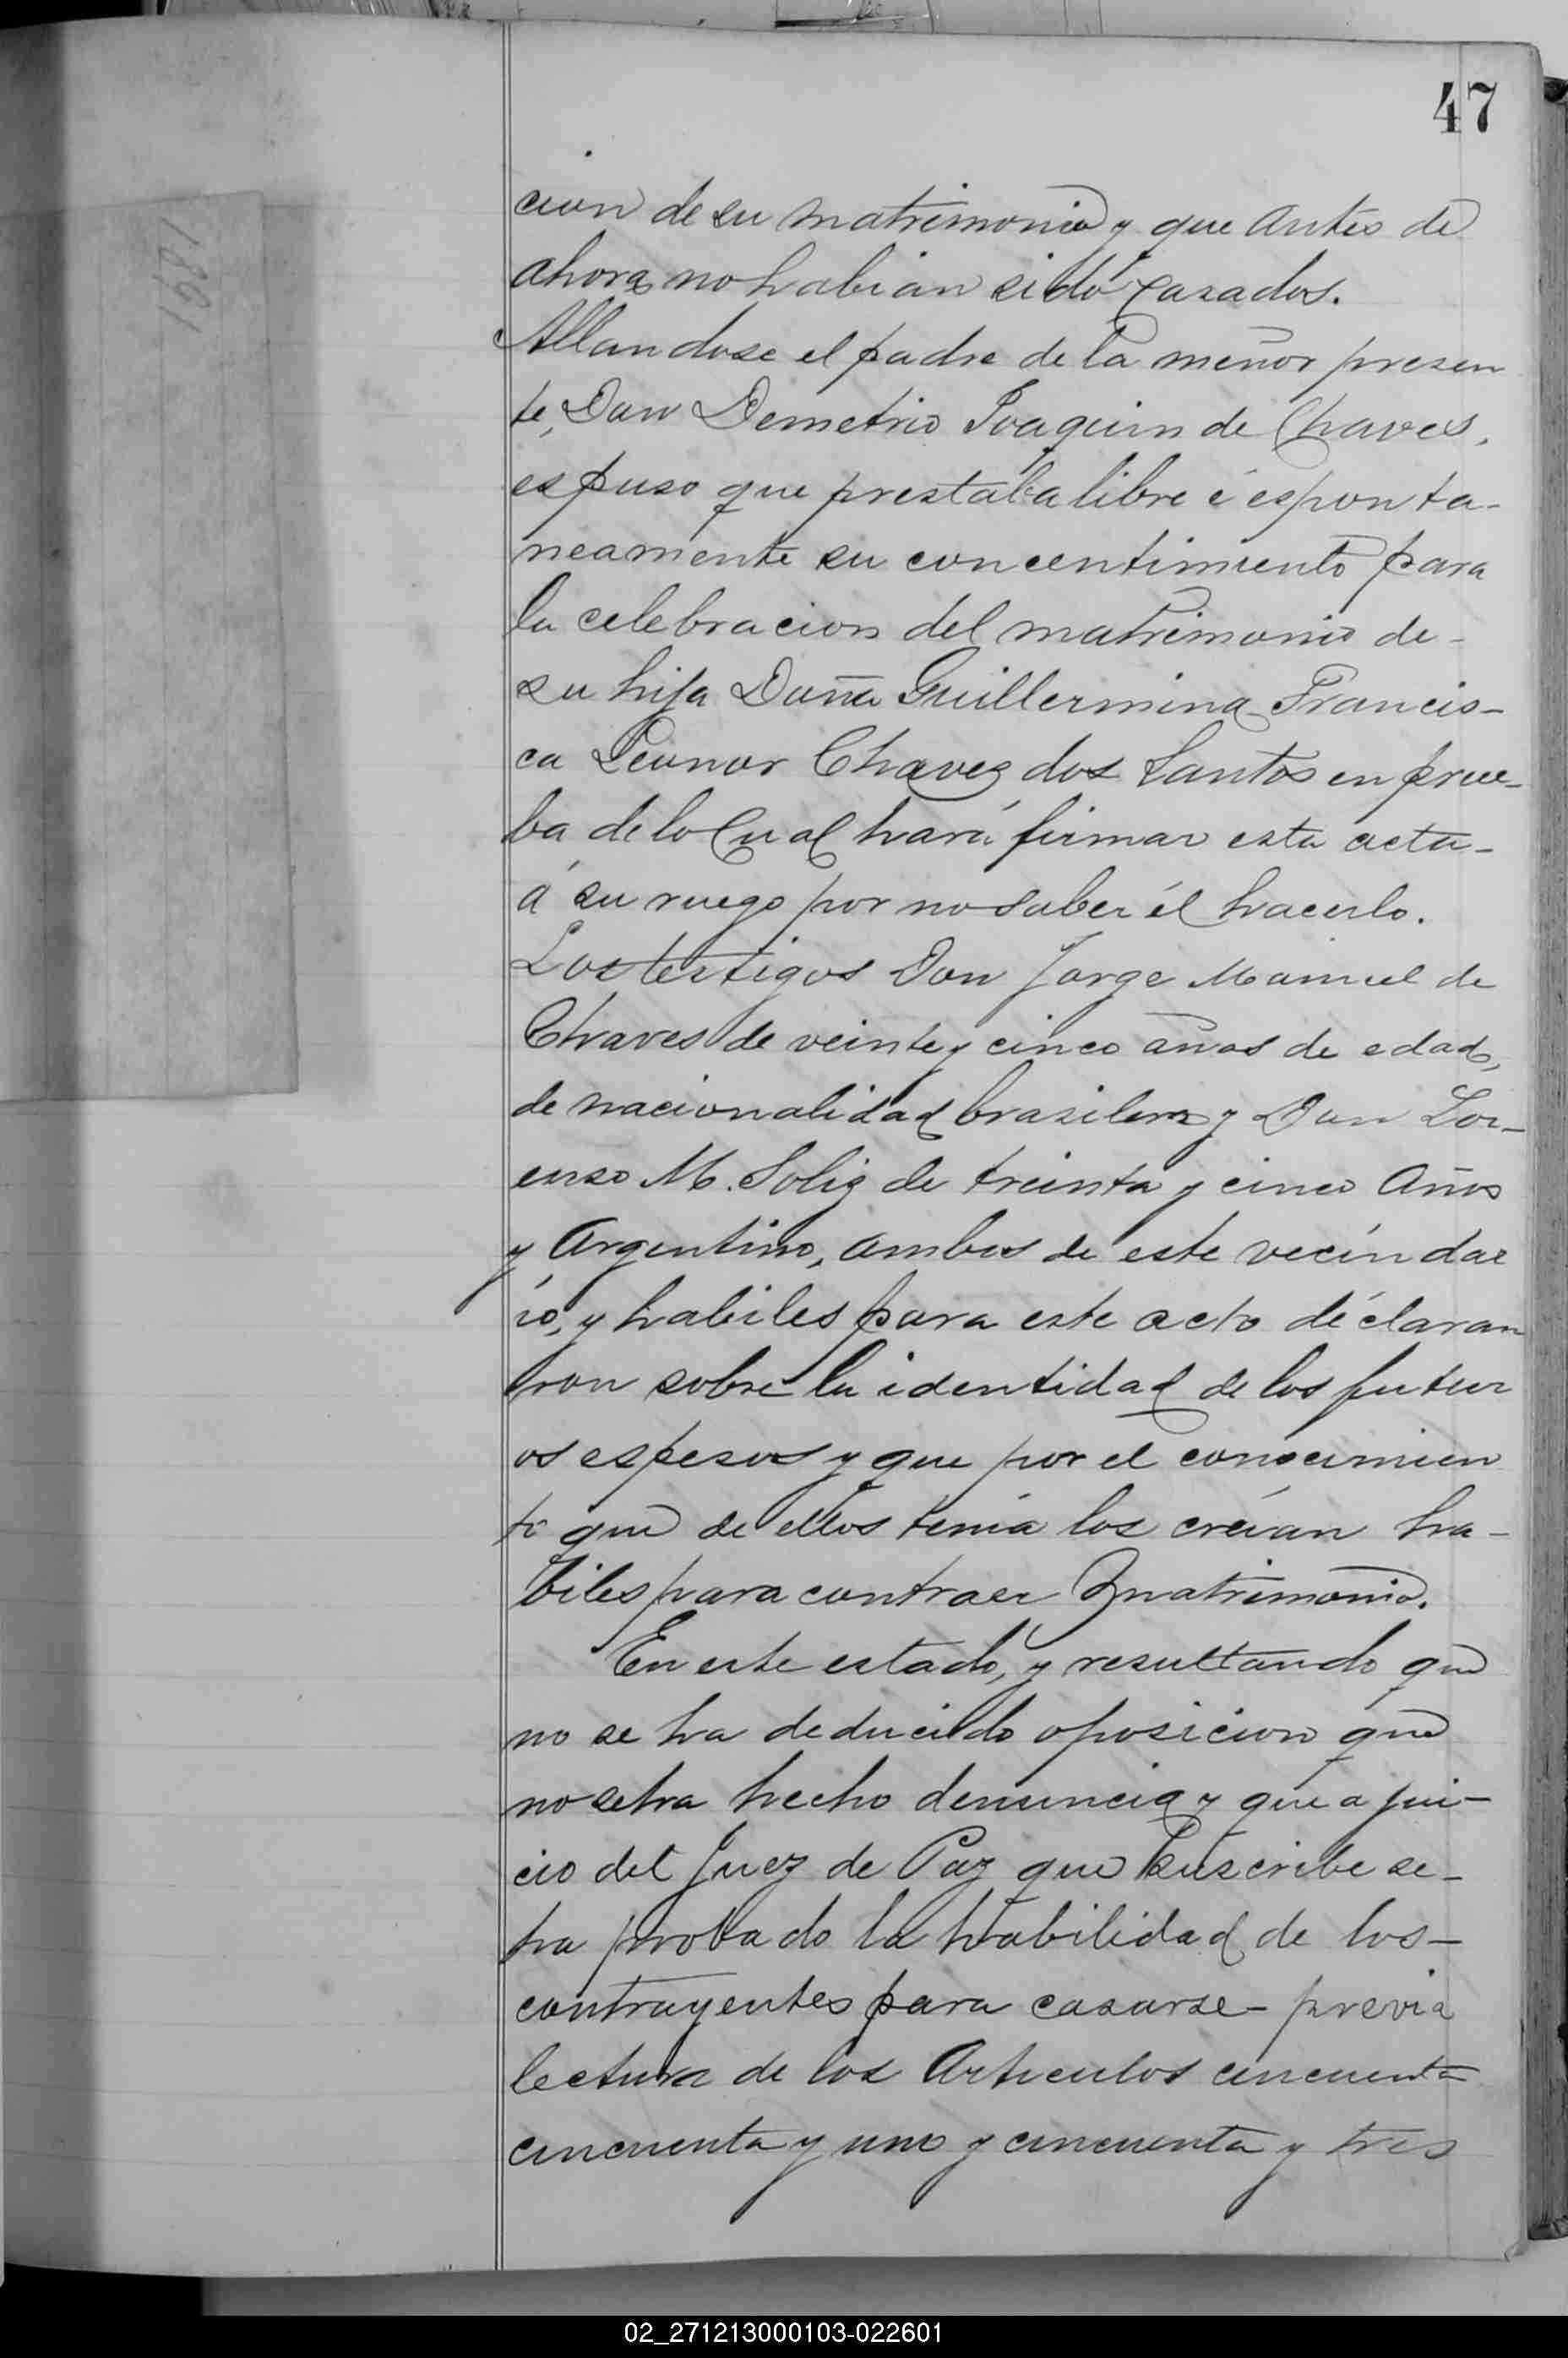 47
cion de su matrimonio y que antes de
ahora no habian sido casados.
Allandose el padre de la menor presen
te, Don Demetrio Joaquin de Chaves,
espuso que prestaba libre é esponta-
neamente su concentimiento para
la celebracion del matrimonio de-
su hija Doña Guillermina Francis-
ca Leonor Chavez dos Santos en prue-
ba de lo Cual hará firmar esta acta-
á su ruego por no saber él hacerlo.
Los testigos Don Jorge Manuel de
Chaves de veinte y cinco años de edad,
de nacionalidad brasilera y Don Lor-
enso M. Solis de treinta y cinco Años
y Argentino, ambos de este vecindar
io, y habiles para este acto declaran
ron sobre la identidad de los futur
os espesos y que por el conocimien
to que de ellos tenia los creian ha-
biles para contraer matrimonio.
En este estado, y resultando que
no se ha deducido oposicion que
no se ha hecho denuncia y que a jui-
cio del Juez de Paz que suscribe se-
ha probado la habilidad de los-
contrayentes para casarse- previa
lectura de los Articulos cincuenta
cincuenta y uno y cincuenta y tres
1891
02_271213000103-022601